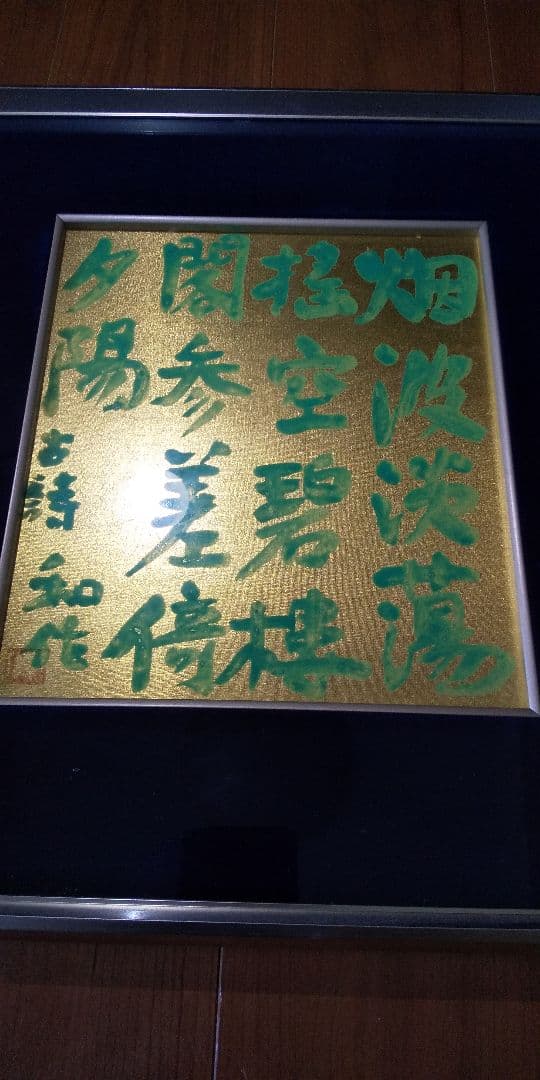 烟波淡蕩
摇空碧樓
閣参差倚
夕陽 古詩 和作